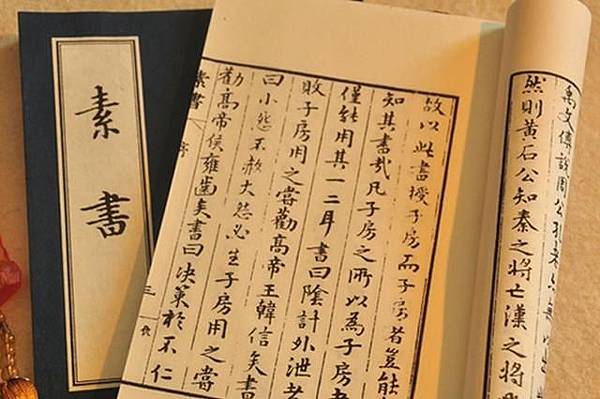 素書
禹文傅說周公孔老亦無以出
然則黃石公知秦之將亡漢之將
故以此書授子房而子房者豈能
知其書哉凡子房之所以為子房
僅能用其一二耳書曰陰計外泄者
敗子房用之嘗勸高帝王韓信矣書
曰小怨不赦大怨必生子房用之嘗
勸高帝侯雍齒矣書曰決策於不仁
素書 序 三